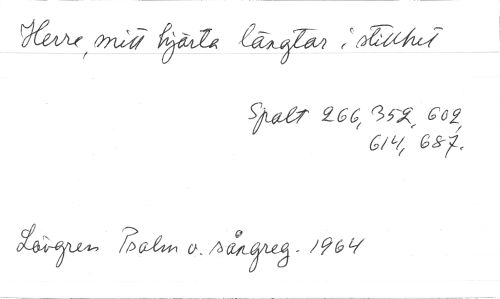 Herre, mitt hjärta längtar i stillhet
Spalt 266, 352, 602,
614, 687.
Lövgren Psalm o. sångreg. 1964